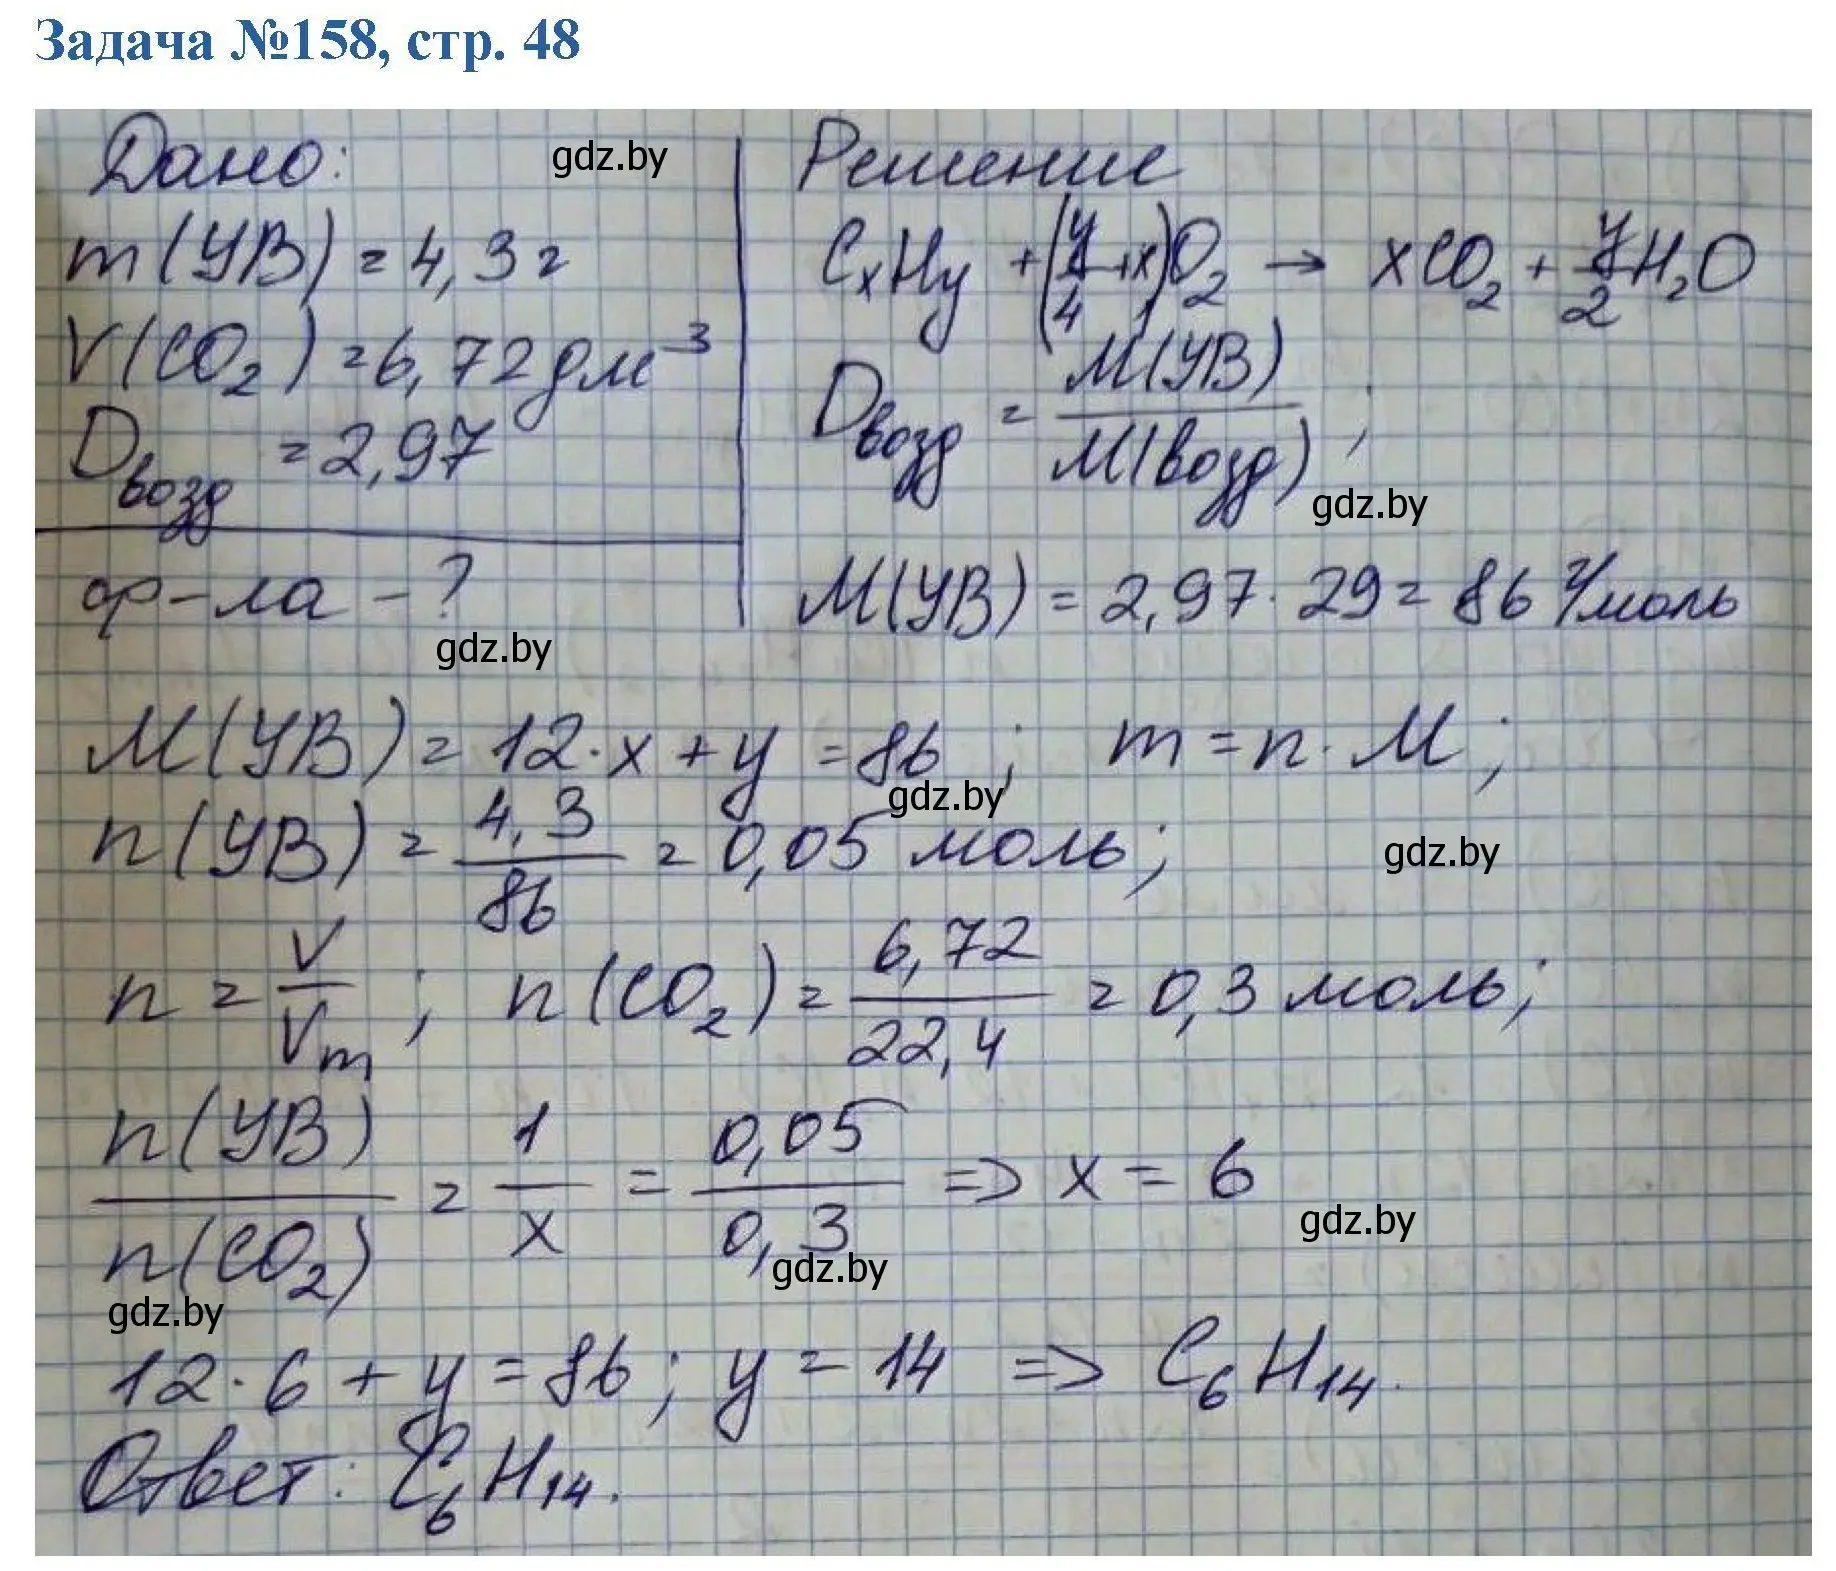 Задача №158, стр. 48
Дано:
gdz.by
m(УВ) = 4,3г
V(CO₂) = 6,72 дм³
Dвозд = 2,97
ф-ла - ?
gdz.by
Решение
CxHy + (y/4 + x)O₂ → xCO₂ + y/2 H₂O
Dвозд = M(УВ)/M(возд) ;
gdz.by
M(УВ) = 2,97 · 29 = 86 г/моль
M(УВ) = 12·x + y = 86 ; m = n · M ;
gdz.by
n(УВ) = 4,3/86 = 0,05 моль ;
gdz.by
n = V/Vm ; n(CO₂) = 6,72/22,4 = 0,3 моль ;
n(УВ)/n(CO₂) = 1/x = 0,05/0,3 => x = 6
gdz.by
gdz.by
gdz.by
12·6 + y = 86 ; y = 14 => C₆H₁₄.
Ответ: C₆H₁₄.